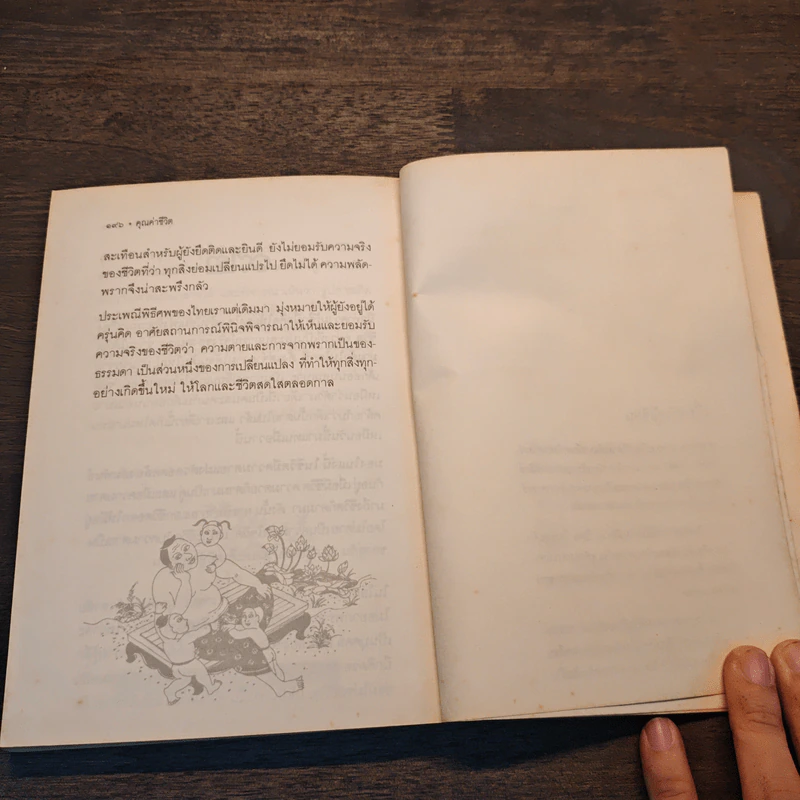 ๑๙๖ • คุณค่าชีวิต
สะเทือนสำหรับผู้ยังยึดติดและยินดี ยังไม่ยอมรับความจริง
ของชีวิตที่ว่า ทุกสิ่งย่อมเปลี่ยนแปรไป ยึดไม่ได้ ความพลัด-
พรากจึงน่าสะพรึงกลัว
ประเพณีพิธีศพของไทยเราแต่เดิมมา มุ่งหมายให้ผู้ยังอยู่ได้
ครุ่นคิด อาศัยสถานการณ์พินิจพิจารณาให้เห็นและยอมรับ
ความจริงของชีวิตว่า ความตายและการจากพรากเป็นของ-
ธรรมดา เป็นส่วนหนึ่งของการเปลี่ยนแปลง ที่ทำให้ทุกสิ่งทุก-
อย่างเกิดขึ้นใหม่ ให้โลกและชีวิตสดใสตลอดกาล